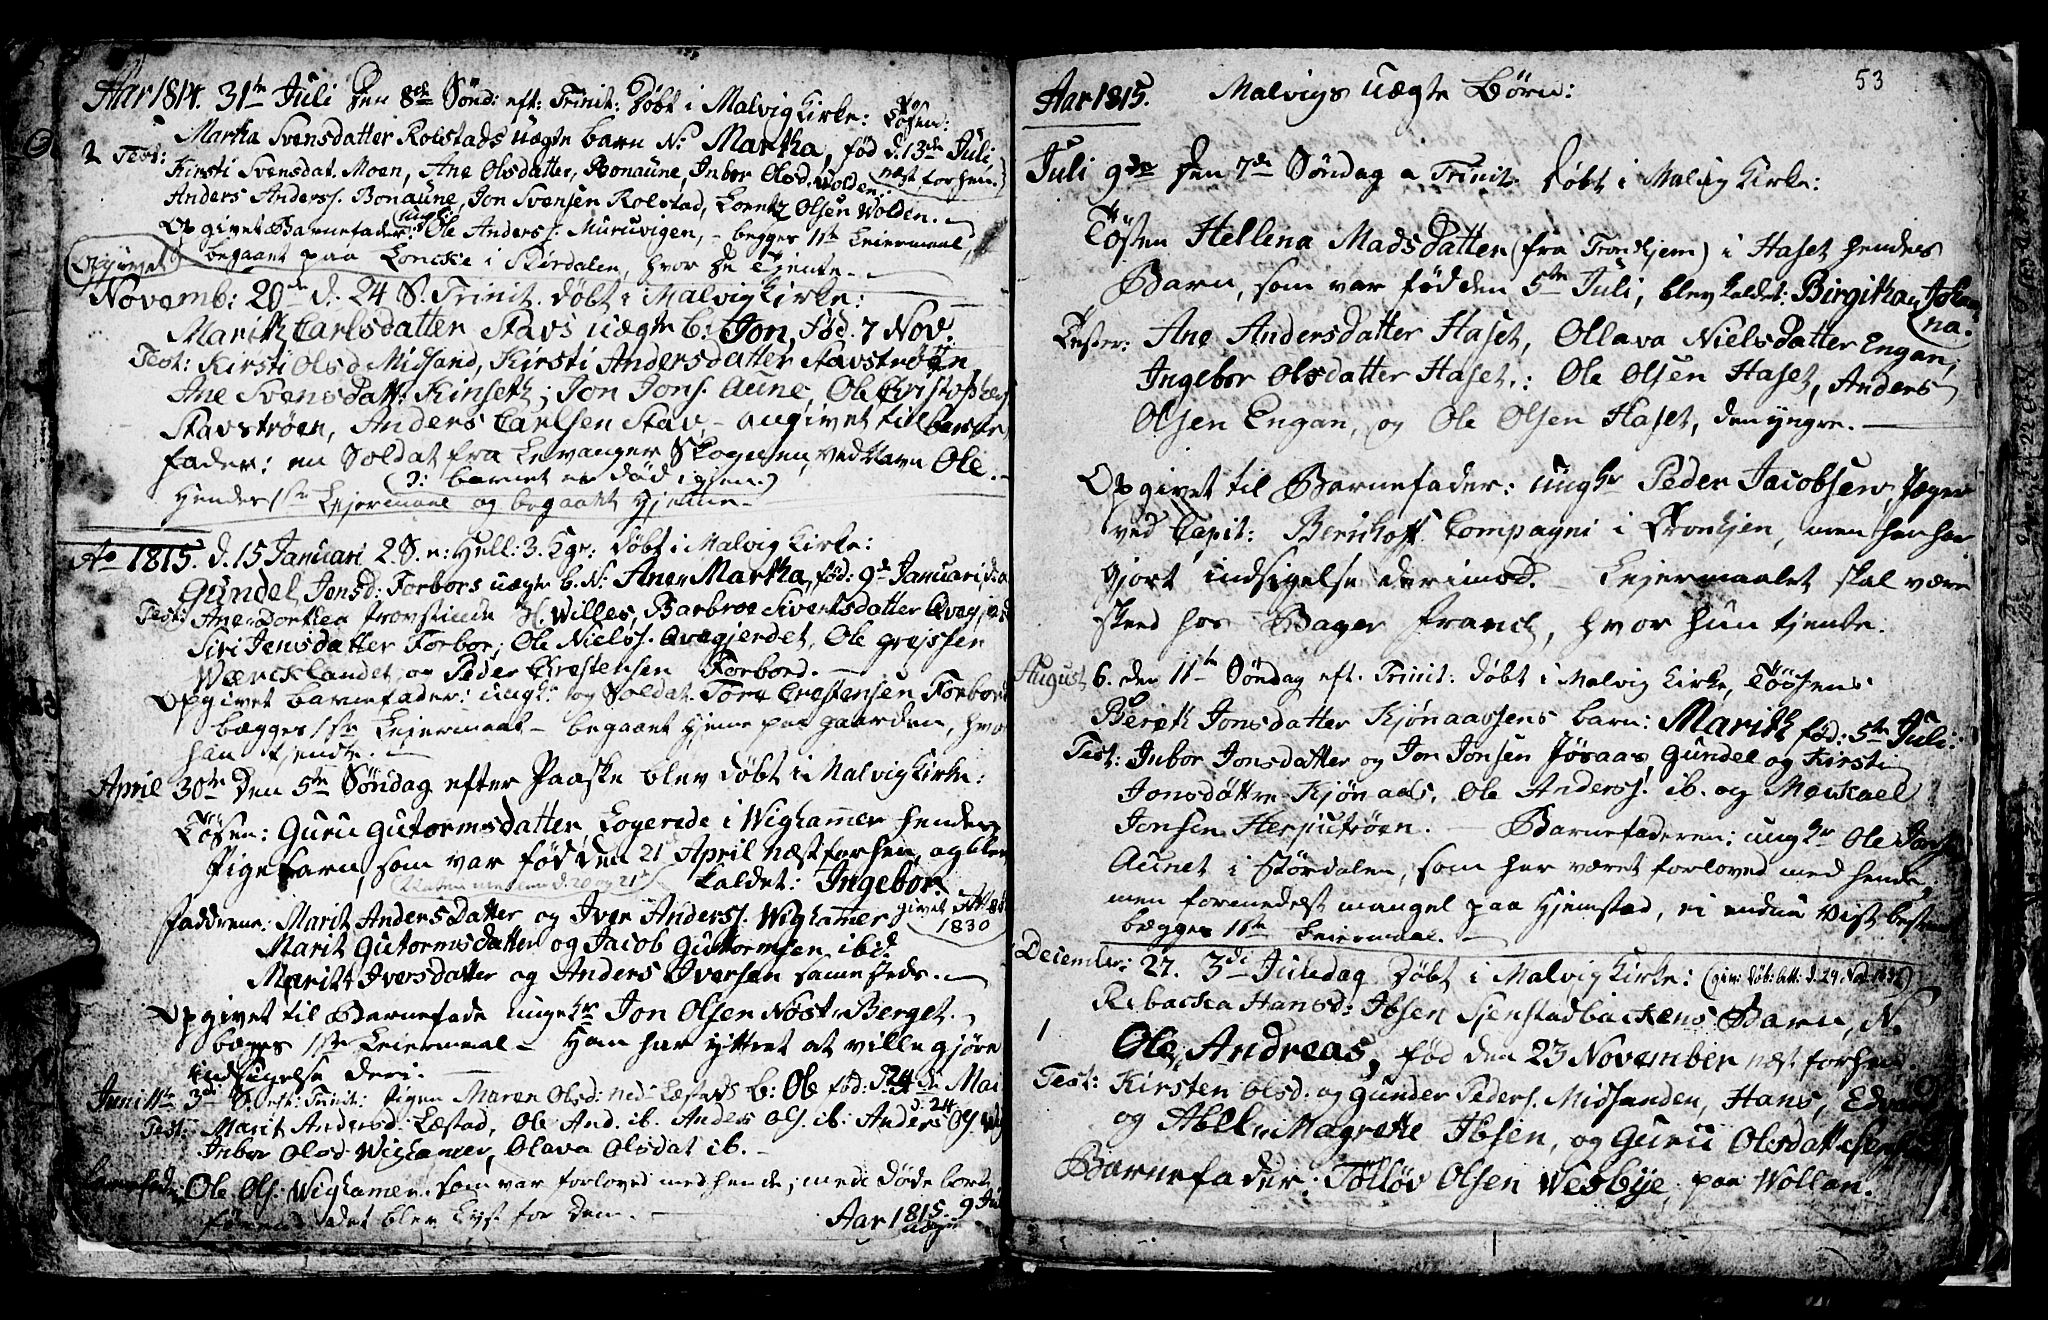 Aar 1814. 31te Juli Den 8de Sønd: eft: Trinit: Døbt i Malvig Kirke: Tøsen:
Martha Svensdatter Rolstads uægte barn N: Martha, fød d. 13de Juli,
2 Test: Kirsti Svensdat. Moen, Ane Olsdatter, Bonaune, Inbor Olsd. Wolden. næst forhen.)
Anders Anderss. Bonaune, Jon Svensen Rolstad, Lorentz Olsen Wolden.
Opgivet Barnefader: ungk: Ole Anderss. Muruvigen, - begges 1te Leiermaal,
begaaet paa Loncke i Størdalen, hvor de tjente.
Novemb: 20de d. 24 S. Trinit. Døbt i Malvig Kirke:
Marith Carlsdatter Stavs uægte b: Jon, fød. 7 Nov:
Test: Kirsti Olsd Midsand, Kirsti Andersdatter Stavstrøen
Ane Svensdatt: Kinseth; Jon Jons. Aune, Ole
Stavstrøen, Anders Carlsen Stav, - angivet til barne
fader: en Soldat fra Levanger Skognsen, ved Navn Ole.
(: barnet er død igien.)
Hendes 1ste Lejermaal og begaaet hjemme.
Ao 1815. d. 15 Januari 2. S. e: Hell: 3. Kgr: Døbt i Malvig Kirke:
Gundel Jensd: Forbors uægte b. N: Ane Martha, fød: 9de Januari
Test: Ane Dorthea Provstinde H. Willes, Barbroe Sivertsdatter
Siri Jensdatter Forbor, Ole Nielss. Qvegjerdet, Ole Grejssen
Værcklandet, og Peder Crestensen Forbord.
Opgivet barnefader: ungk: og Soldat Tore Crestensen Forbord
bægges 1ste Leiermaal - begaaet hjemme paa gaarden, hvor
han tjente.
April 30te Den 5te Søndag efter Paaske blev døbt i Malvig Kirke:
Tøsen: Guru Gutormsdatter Logerede i Wighamer hendes
Pigebarn, som var fød den 21 April næst forhen, og blev
(Natten mellem d. 20 og 21te) kaldet: Ingebor.
Faddrene: Marit Anders Datter og Iver Anderss. Wighamer
givet Att: 1830
Marit Gutormsdatter og Jacob Guttormsen ibid.
Marit Iversdatter og Anders Iversen samesteds.
Opgivet til Barnefade ungekr Jon Olsen Nøst-Berget.
bæges 1ste Leiermaal - Han har yttret at ville gjøre
Indsigelse deri.
Juni 11te 3de S. eft: Trinit: Pigen Maren Olsd: b: Ole fød: d. 24de Mai
Test: Marit Andersd. Læstad, Ole And. ib. Anders Ols. ib: Anders Ols.
Inbor Olsd Wighamer, Olava Olsdat ib.
Barnefader Ole Ols. Wighamer. som var forloved med hende, men døde bort
førend det blev Lyst for dem.
Aar 1815. 9 Juli
uægte
53
Aar 1815. Malvigs uægte Børn:
Juli 9de Den 7de Søndag a Trinit. Døbt i Malvig Kirke:
Tøsen Hellena Mads Datter (fra Tronhjem) i Haset hendes
Barn, som var fød den 5te Juli, blev kaldet: Birgitha Johanna.
Test: Ane Andersdatter Haset, Ollava Nielsdatter Engan,
Ingebor Olsdatter Haset,: Ole Olsen Haset, Anders
Olsen Engan, og Ole Olsen Haset, den yngre.
Opgivet til Barnefader: ungkr Peder Jacobsen, Jæger
ved Capit: Compagni i Tronhjem, men han har
gjort indsigelse derimod. - Leiermaalet skal være
skeed hos Bager Franck, hvor hun tjente.
August 6. den 11te Søndag eft. Trinit: Døbt i Malvig Kirke, Tøsens
Bereth Jonsdatter Kjønaassens barn: Marith fød: 5te Juli:
Test: Inbor Jonsdatter og Jon Jonsen Jøsaas Gundel og Kirsti
Jonsdøttre Kjønaas, Ole Anderss. ib. og Mickael
Jonsen Herjustrøen. - Barnefaderen: ungkr Ole
Aunet i Størdalen, som har været forloved med hende,
men formedelst mangel paa Hjemstad, ei endnu Vist bestemt
bægges 1te Leiermaal.
December: 27. 3de Juledag Døbt i Malvig Kirke: (giv: Døb: att: d. 29 Nov. 1832)
Rebacka Hansd: Ibsen Sjenstadbackens Barn, N.
1 Ole Andreas, fød den 23 November næst forhen.
Test: Kirsten Olsd. og Gunder Peders. Midsanden, Hans, Edvard
og Abell Magrethe Ibsen, og Guru Olsdatt
Barnefader: Tølløv Olsen Wesbye, paa Wollan.